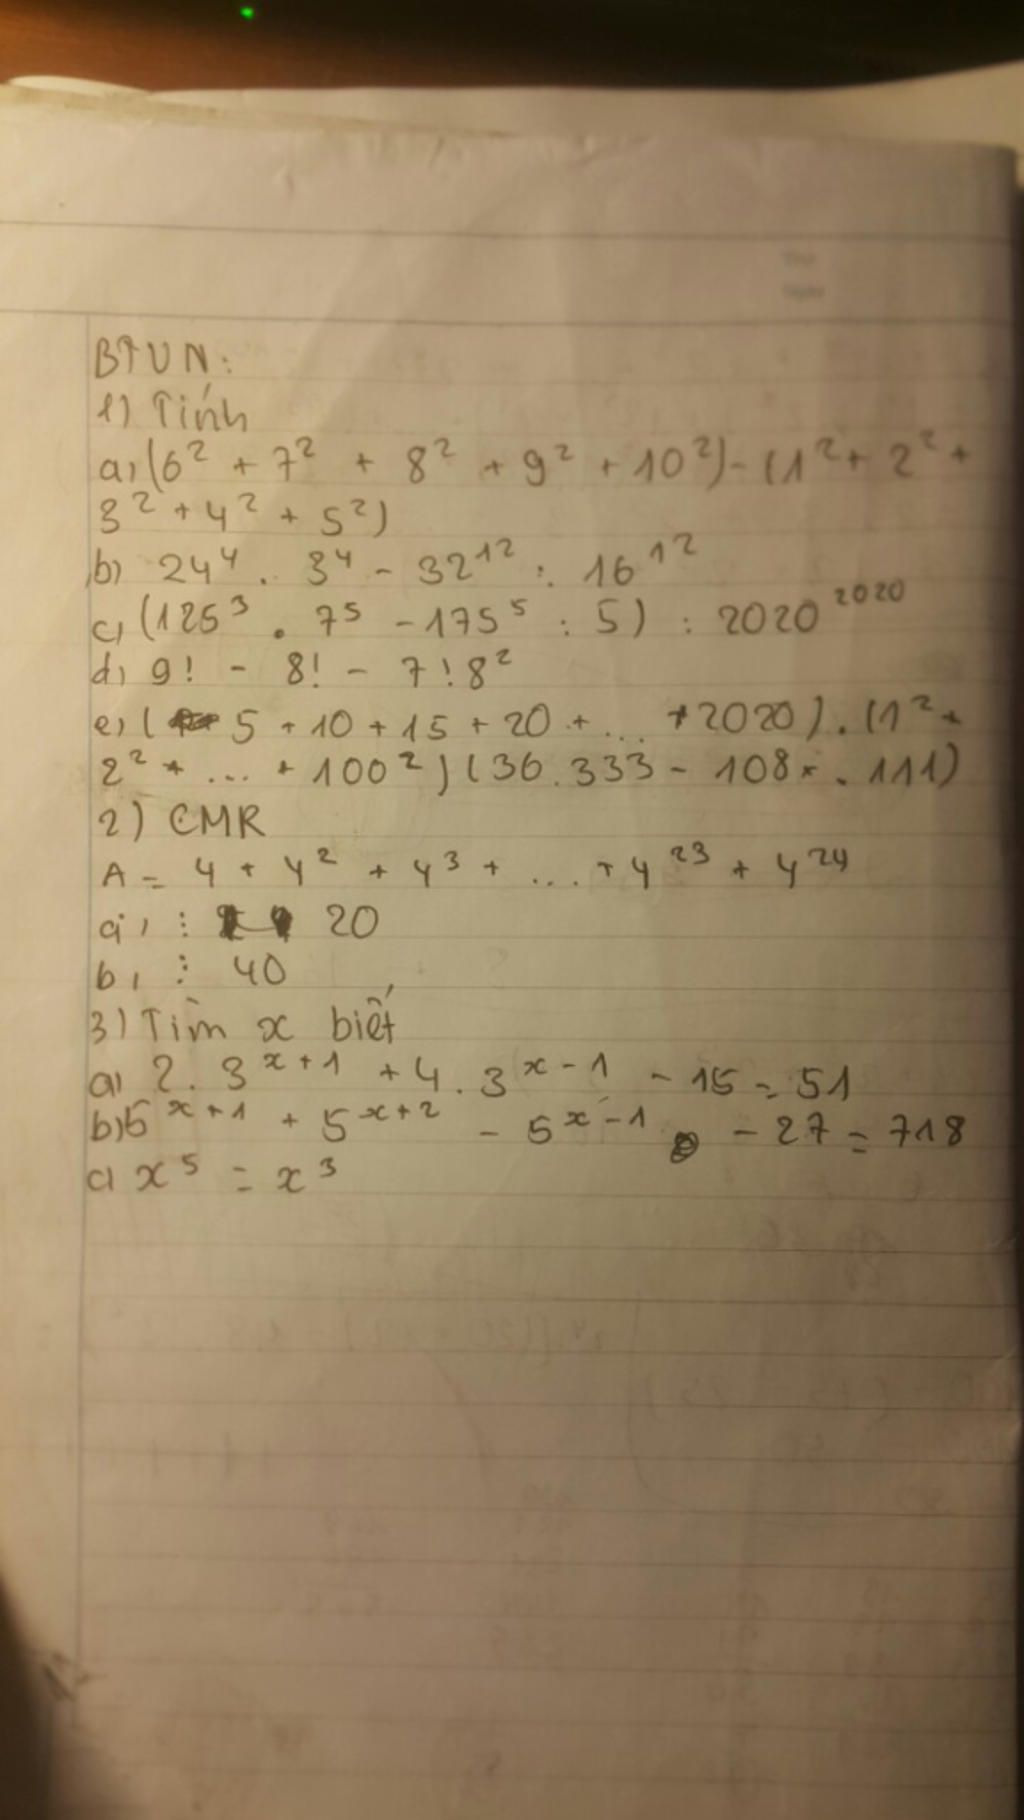 BTVN:
1) Tính
a, (6² + 7² + 8² + 9² + 10²) - (1² + 2² +
3² + 4² + 5²)
b) 24⁴ . 3⁴ - 32¹² : 16¹²
c, (125³ . 7⁵ - 175⁵ : 5) : 2020²⁰²⁰
d, 9! - 8! - 7!8²
e, ( 5 + 10 + 15 + 20 + ... + 2020) . (1² +
2² + ... + 100²) (36.333 - 108 . 111)
2) CMR
A = 4 + 4² + 4³ + ... + 4²³ + 4²⁴
a, ⋮ 20
b, ⋮ 40
3) Tìm x biết
a) 2. 3ˣ⁺¹ + 4. 3ˣ⁻¹ - 15 = 51
b) 5ˣ⁺¹ + 5ˣ⁺² - 5ˣ⁻¹ - 27 = 718
c) x⁵ = x³